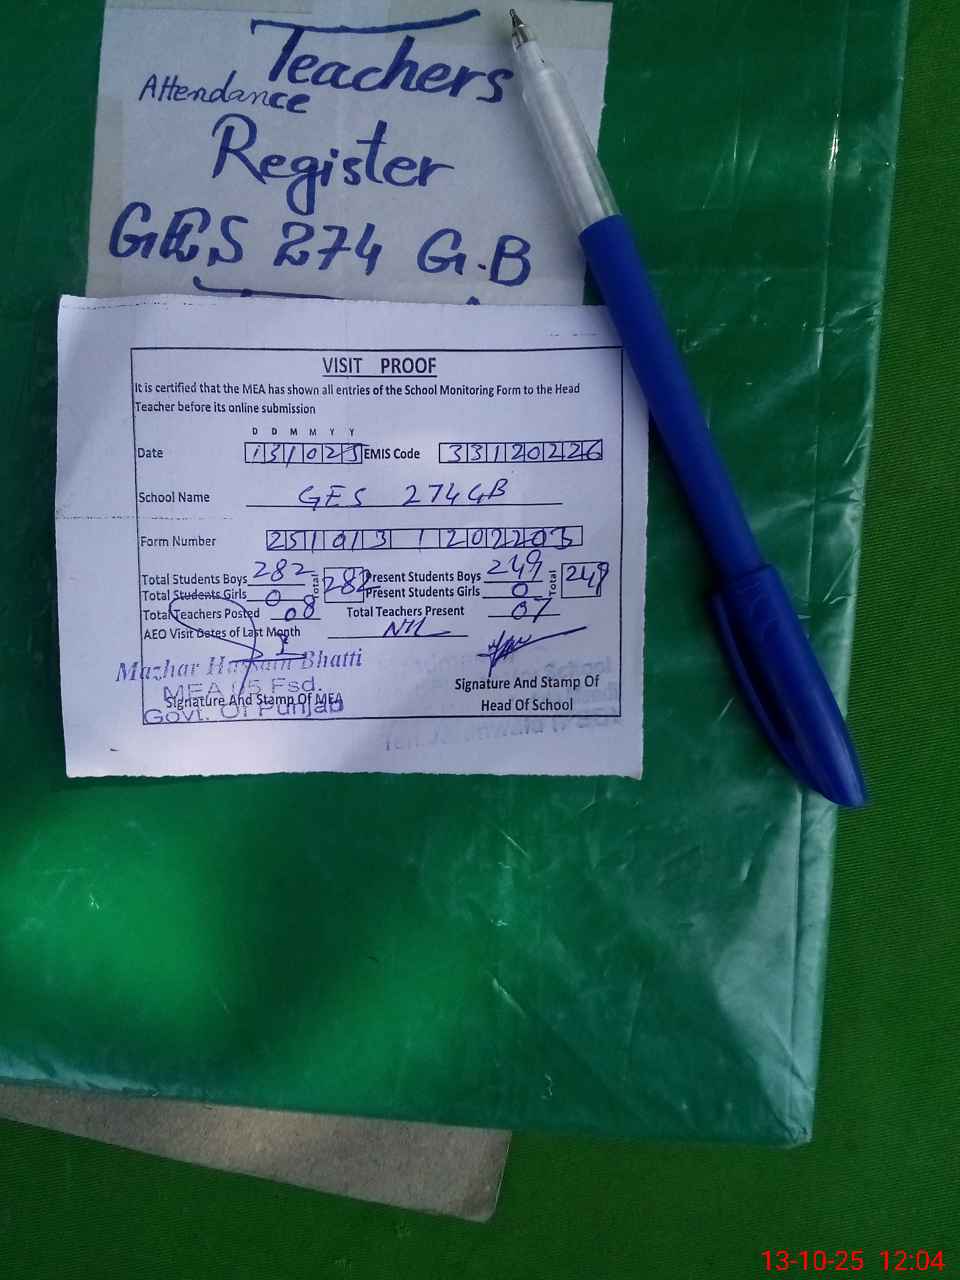 Teachers
Attendance
Register
GES 274 G.B
VISIT PROOF
It is certified that the MEA has shown all entries of the School Monitoring Form to the Head
Teacher before its online submission
D D M M Y Y
Date 131025 EMIS Code 33120226
School Name GES 274 GB
Form Number 2511013 1 202203
Total Students Boys 282 Total 282 Present Students Boys 249 Total 249
Total Students Girls 0 Present Students Girls 0
Total Teachers Posted 08 Total Teachers Present 07
AEO Visit Dates of Last Month Nil
Mazhar Hussain Bhatti
MEA 05 Fsd.
Signature And Stamp Of MEA
Govt. Of Punjab
Signature And Stamp Of
Head Of School
13-10-25 12:04